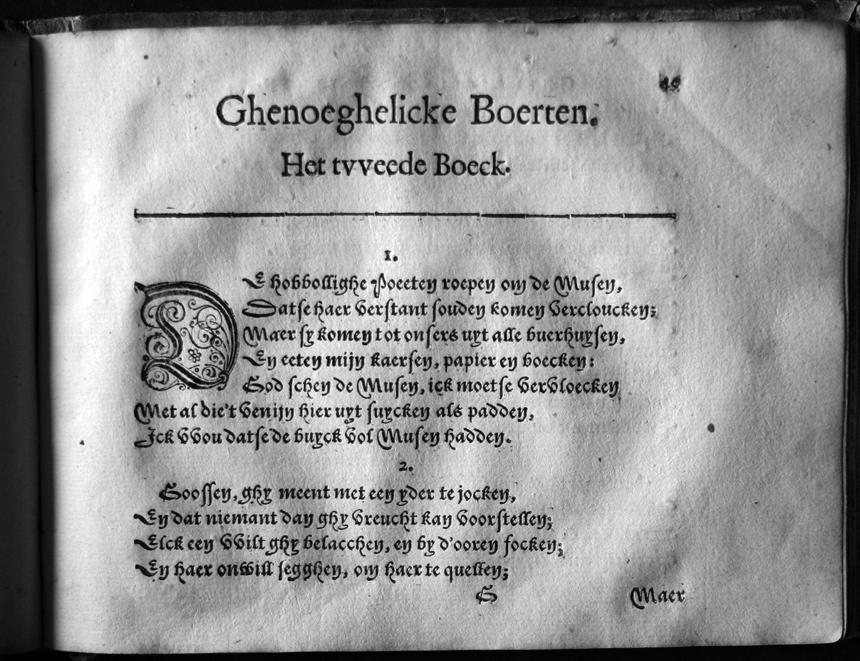 49
Ghenoeghelicke Boerten.
Het tvveede Boeck.
1.
DE hobbollighe Poeeten roepen om de Musen,
Datse haer verstant souden komen vercloucken;
Maer sy komen tot onsers uyt alle buerhuysen,
En eeten mijn kaersen, papier en boecken:
God schen de Musen, ick moetse vervloecken
Met al die't venijn hier uyt suycken als padden,
Ick vvou datse de buyck vol Musen hadden.
2.
Goossen, ghy meent met een yder te jocken,
En dat niemant dan ghy vreucht kan voorstellen;
Elck een vvilt ghy belacchen, en by d'ooren focken;
En haer onwill segghen, om haer te quellen;
G
Maer